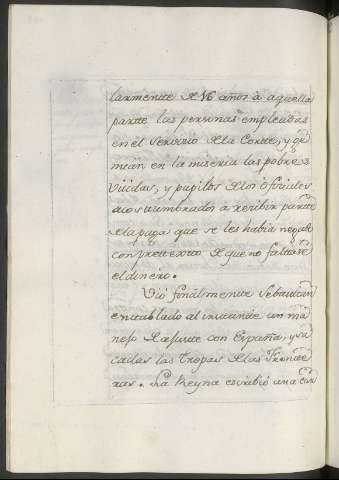 larmente de 16 años à aquella
partte las personas empleadas
en el Servicio dela Corte, y ge
mian, en la miseria las pobres
viudas, y pupilos delos ofiziales
acostumbrados à rezibir partte
dela paga que se les havia negado
con prettexto de que no faltase
el dinero.
Vió finalmente Sebastian
entablado al instante un ma
nejo de ajuste con España, y sa
cadas las tropas delas Fronte
ras. La Reyna escribió una Car